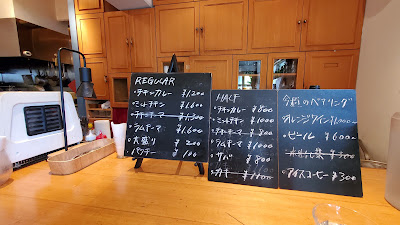 REGULAR
・チキンカレー ¥1,200
・ミントチキン ¥1,600
・チキーマー ¥1,300
・ラムキーマ ¥1,600
・大盛り ¥200
・パクチー ¥100
HALF
・チキンカレー ¥800
・ミントチキン ¥1000
・チキーマー ¥800
・ラムキーマ ¥1000
・サバ ¥800
・カキ ¥1100
今月のペアリング
・オレンジワイン ¥1,000
・ビール ¥600
・水出し茶 ¥500
・アイスコーヒー ¥300